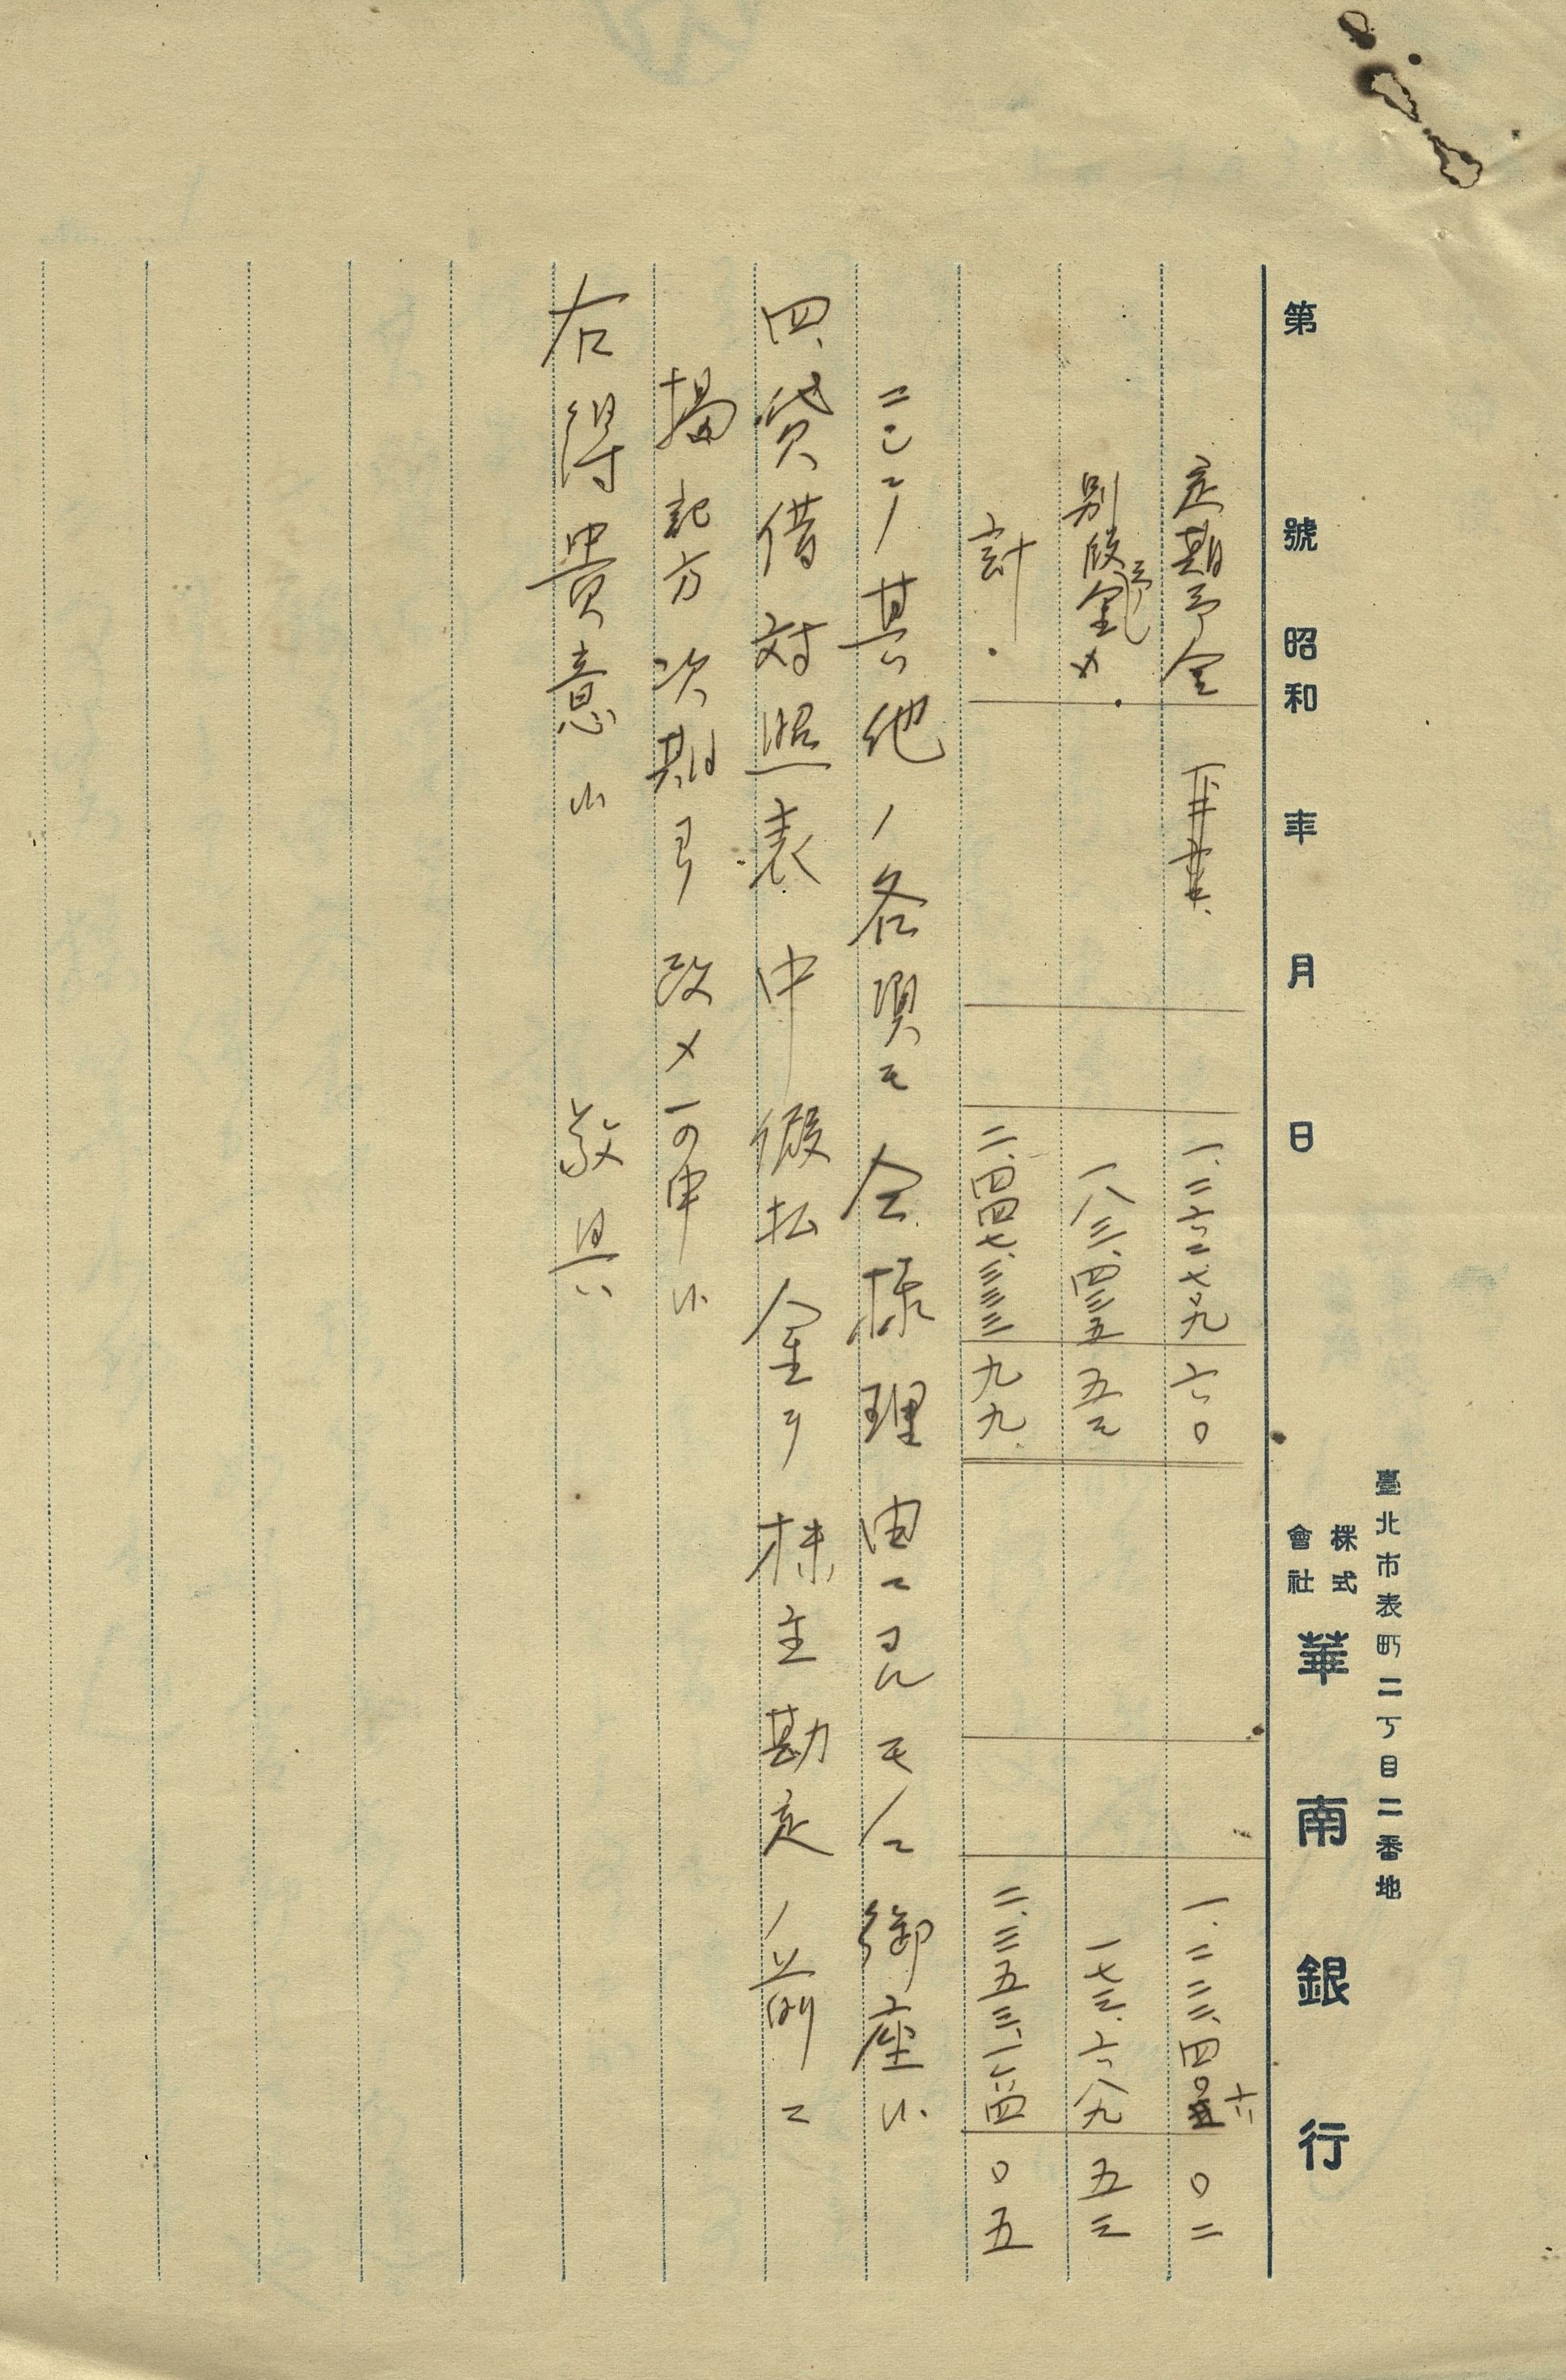 臺北市表町二丁目二番地
株式會社 華南銀行
第 號 昭和 年 月 日
定期予金 一、二六二、七〇九 六〇 一、二二三、四〇六 〇二
別段予金 一八三、四三五 五三 一七三、六八九 五三
計 二、四四七、三三三 九九 二、三五三、一六四 〇五
其他ノ各項モ全様理由ニヨルモノニ御座候
四、貸借対照表中仮払金ヲ株主勘定ノ前ニ
掲記方次期ヨリ改メ可申候
右得貴意候 敬具